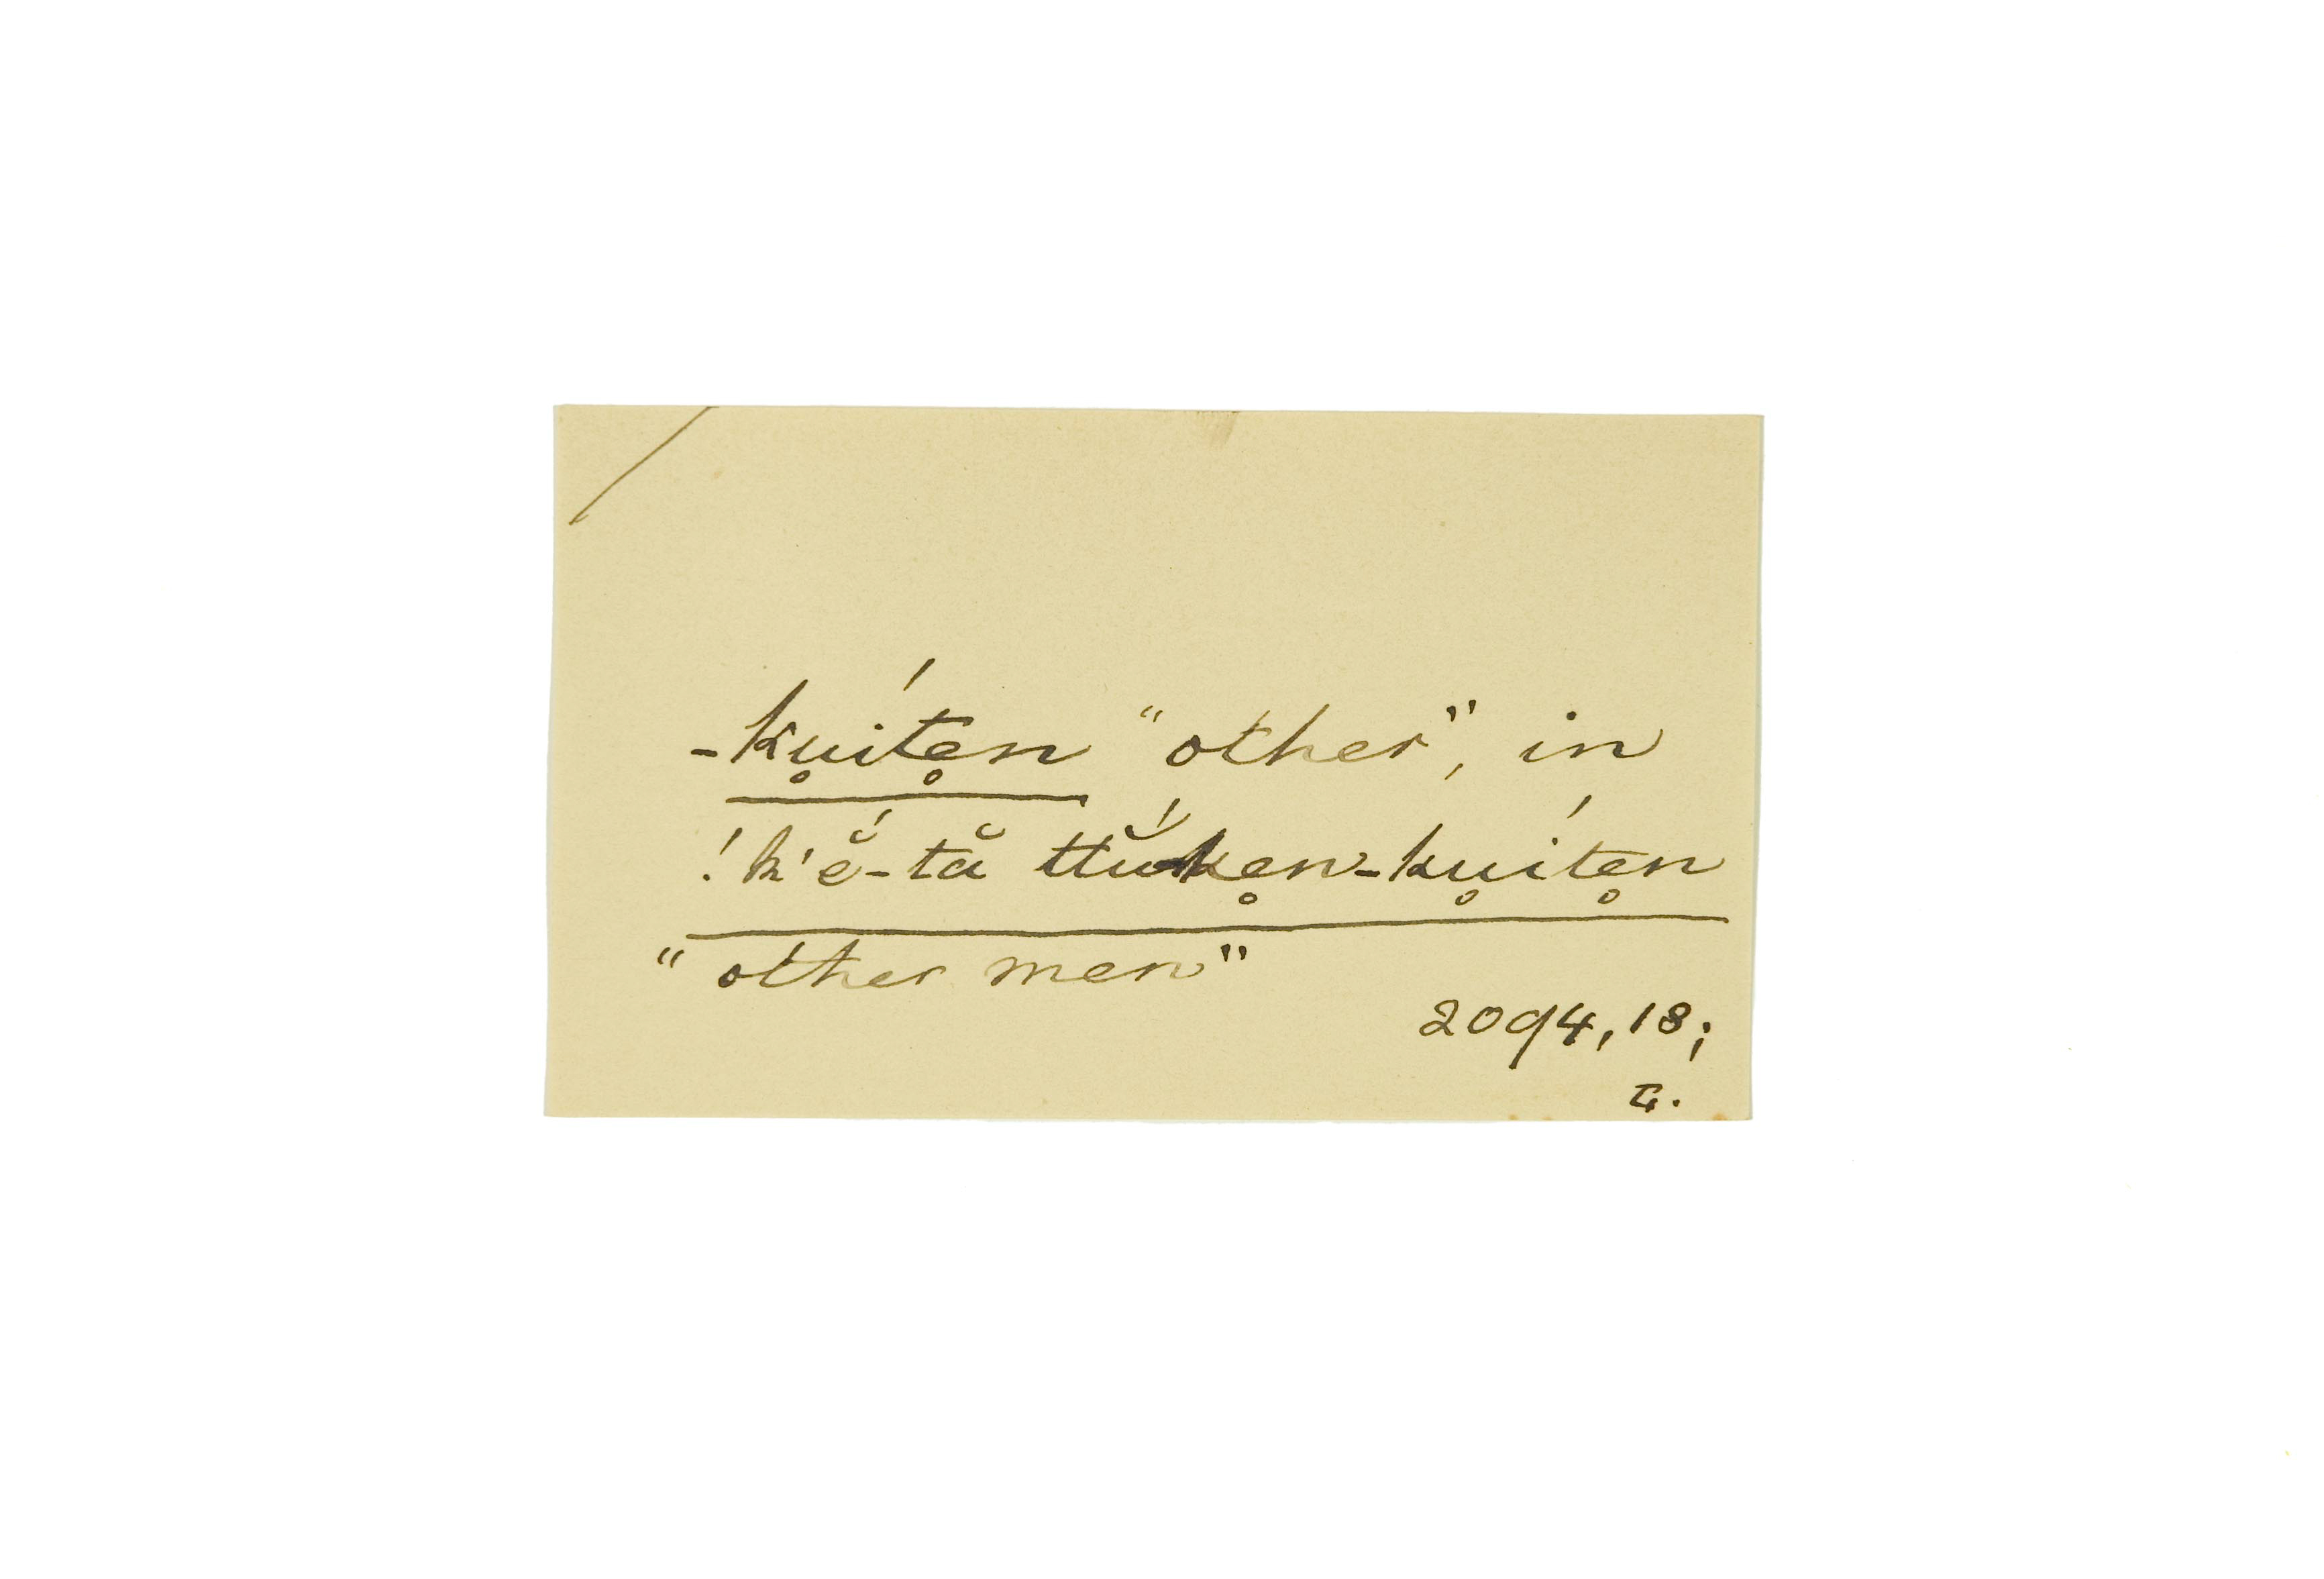 -ku̥íte̥n "other", in
!k'ĕ́-tă ttŭ́ke̥n-ku̥íte̥n
"other men"
2094, 13;